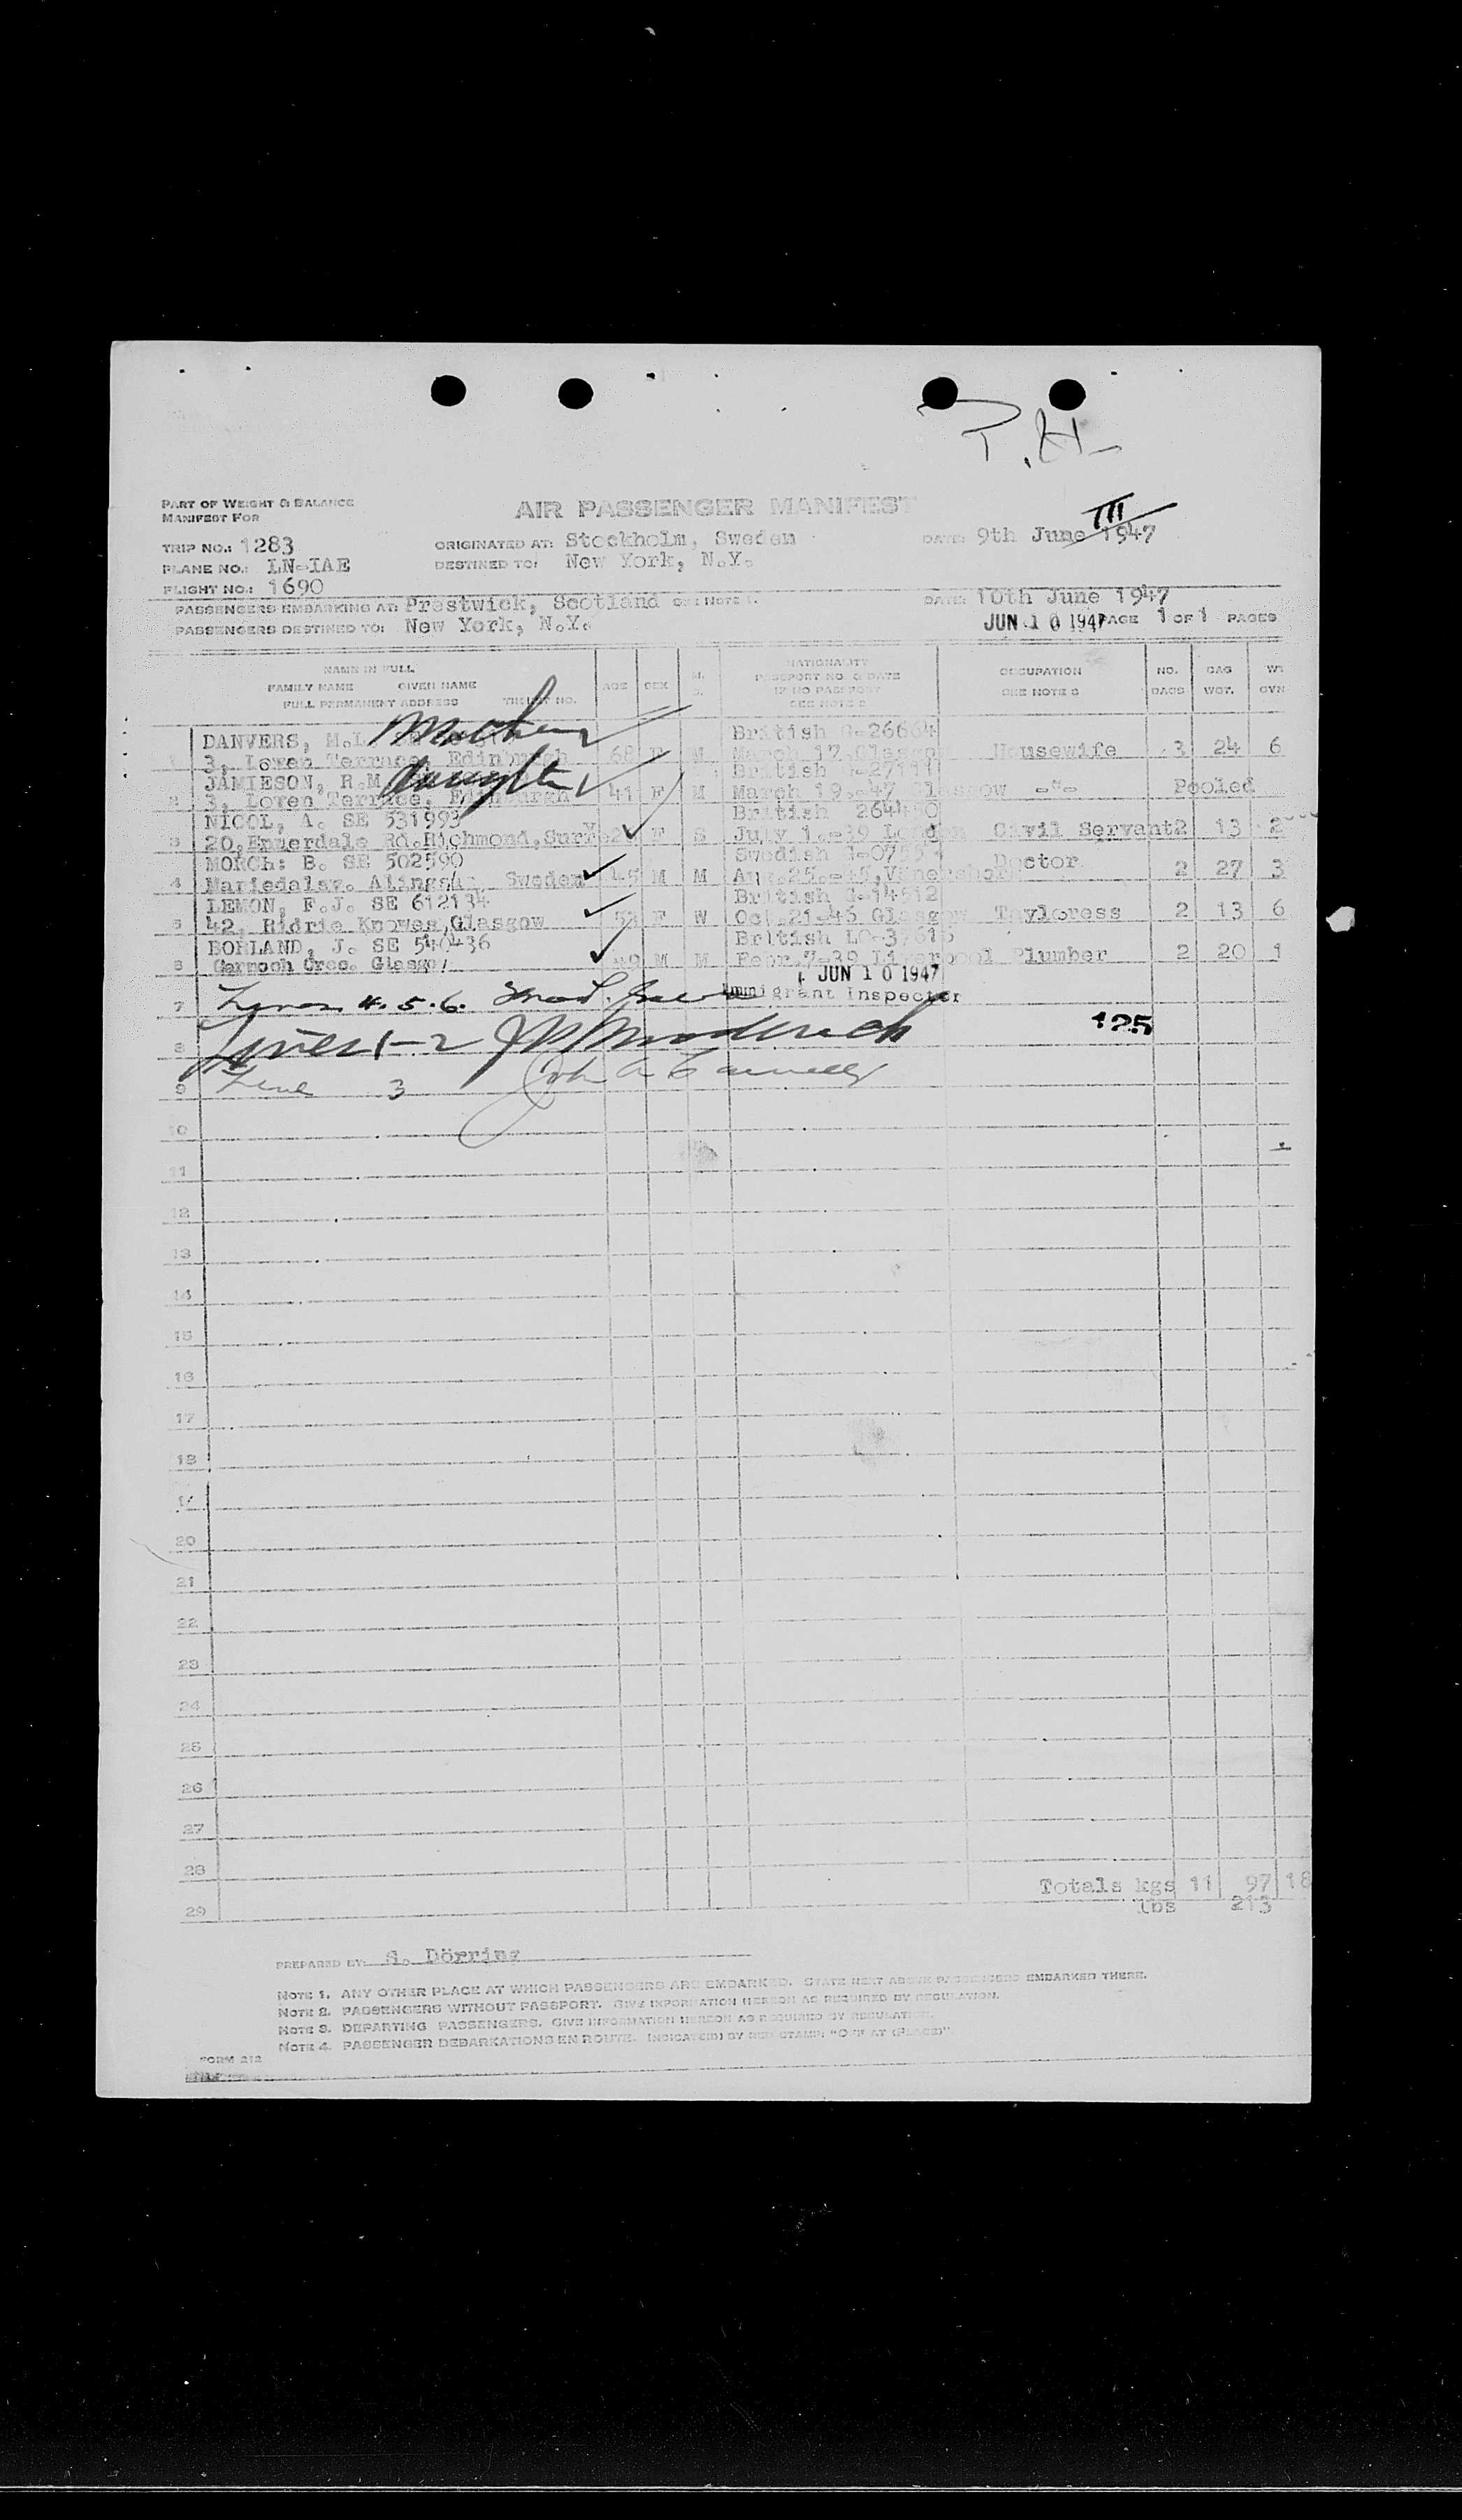 T.H.
PART OF WEIGHT & BALANCE
MANIFEST FOR
AIR PASSENGER MANIFEST
III
TRIP NO.: 1283 ORIGINATED AT: Stockholm, Sweden DATE: 9th June 1947
PLANE NO.: LN-IAE DESTINED TO: New York, N.Y.
FLIGHT NO.: 1690
PASSENGERS EMBARKING AT: Prestwick, Scotland SEE NOTE 1. DATE: 10th June 1947
PASSENGERS DESTINED TO: New York, N.Y. JUN 10 1947 PAGE 1 OF 1 PAGES
NAME IN FULL NATIONALITY
FAMILY NAME GIVEN NAME AGE SEX M. PASSPORT NO. & DATE OCCUPATION NO. BAG WT.
FULL PERMANENT ADDRESS TICKET NO. S. IF NO PASSPORT SEE NOTE 3 BAGS WGT.
SEE NOTE 2
Mother
DANVERS, M.L. British G-26664
1 3, Loven Terrace, Edinburgh 68 F March 17. Housewife 3 24 6
daughter
JAMIESON, R.M. British
2 3, Loven Terrace, Edinburgh 41 F M March 19.-47 -"- Pooled
NICOL, A. SE 531993 British
3 20, Ennerdale Rd. Richmond, Surrey F S July 1.-39 Civil Servant 2 13 2
MORCH: B. SE 502590 Swedish
4 Sweden 45 M M Doctor 2 27 3
LEMON, F.J. SE 612134 British G-14512
5 42, Ridrie Knowes, Glasgow 53 F W Oct.21-46 Glasgow Tayloress 2 13 6
BORLAND, J. SE 540436 British
6 Garnoch Cres. Glasgow 49 M M Febr.7-39 Liverpool Plumber 2 20 1
JUN 10 1947
7 4.5.6. Immigrant Inspector
125
8 Lines 1-2
9 Line 3 John A
10
11
12
13
14
15
16
17
18
19
20
21
22
23
24
25
26
27
28
Totals kgs 11 97 18
29 lbs 213
PREPARED BY: S. Dörring
NOTE 1. ANY OTHER PLACE AT WHICH PASSENGERS ARE EMBARKED. STATE NEXT ABOVE PASSENGERS EMBARKED THERE.
NOTE 2. PASSENGERS WITHOUT PASSPORT. GIVE INFORMATION HEREON AS REQUIRED BY REGULATION.
NOTE 3. DEPARTING PASSENGERS. GIVE INFORMATION HEREON AS REQUIRED BY REGULATION.
NOTE 4. PASSENGER DEBARKATIONS EN ROUTE. INDICATE(D) BY RED STAMP: "OFF AT (PLACE)"
FORM 212